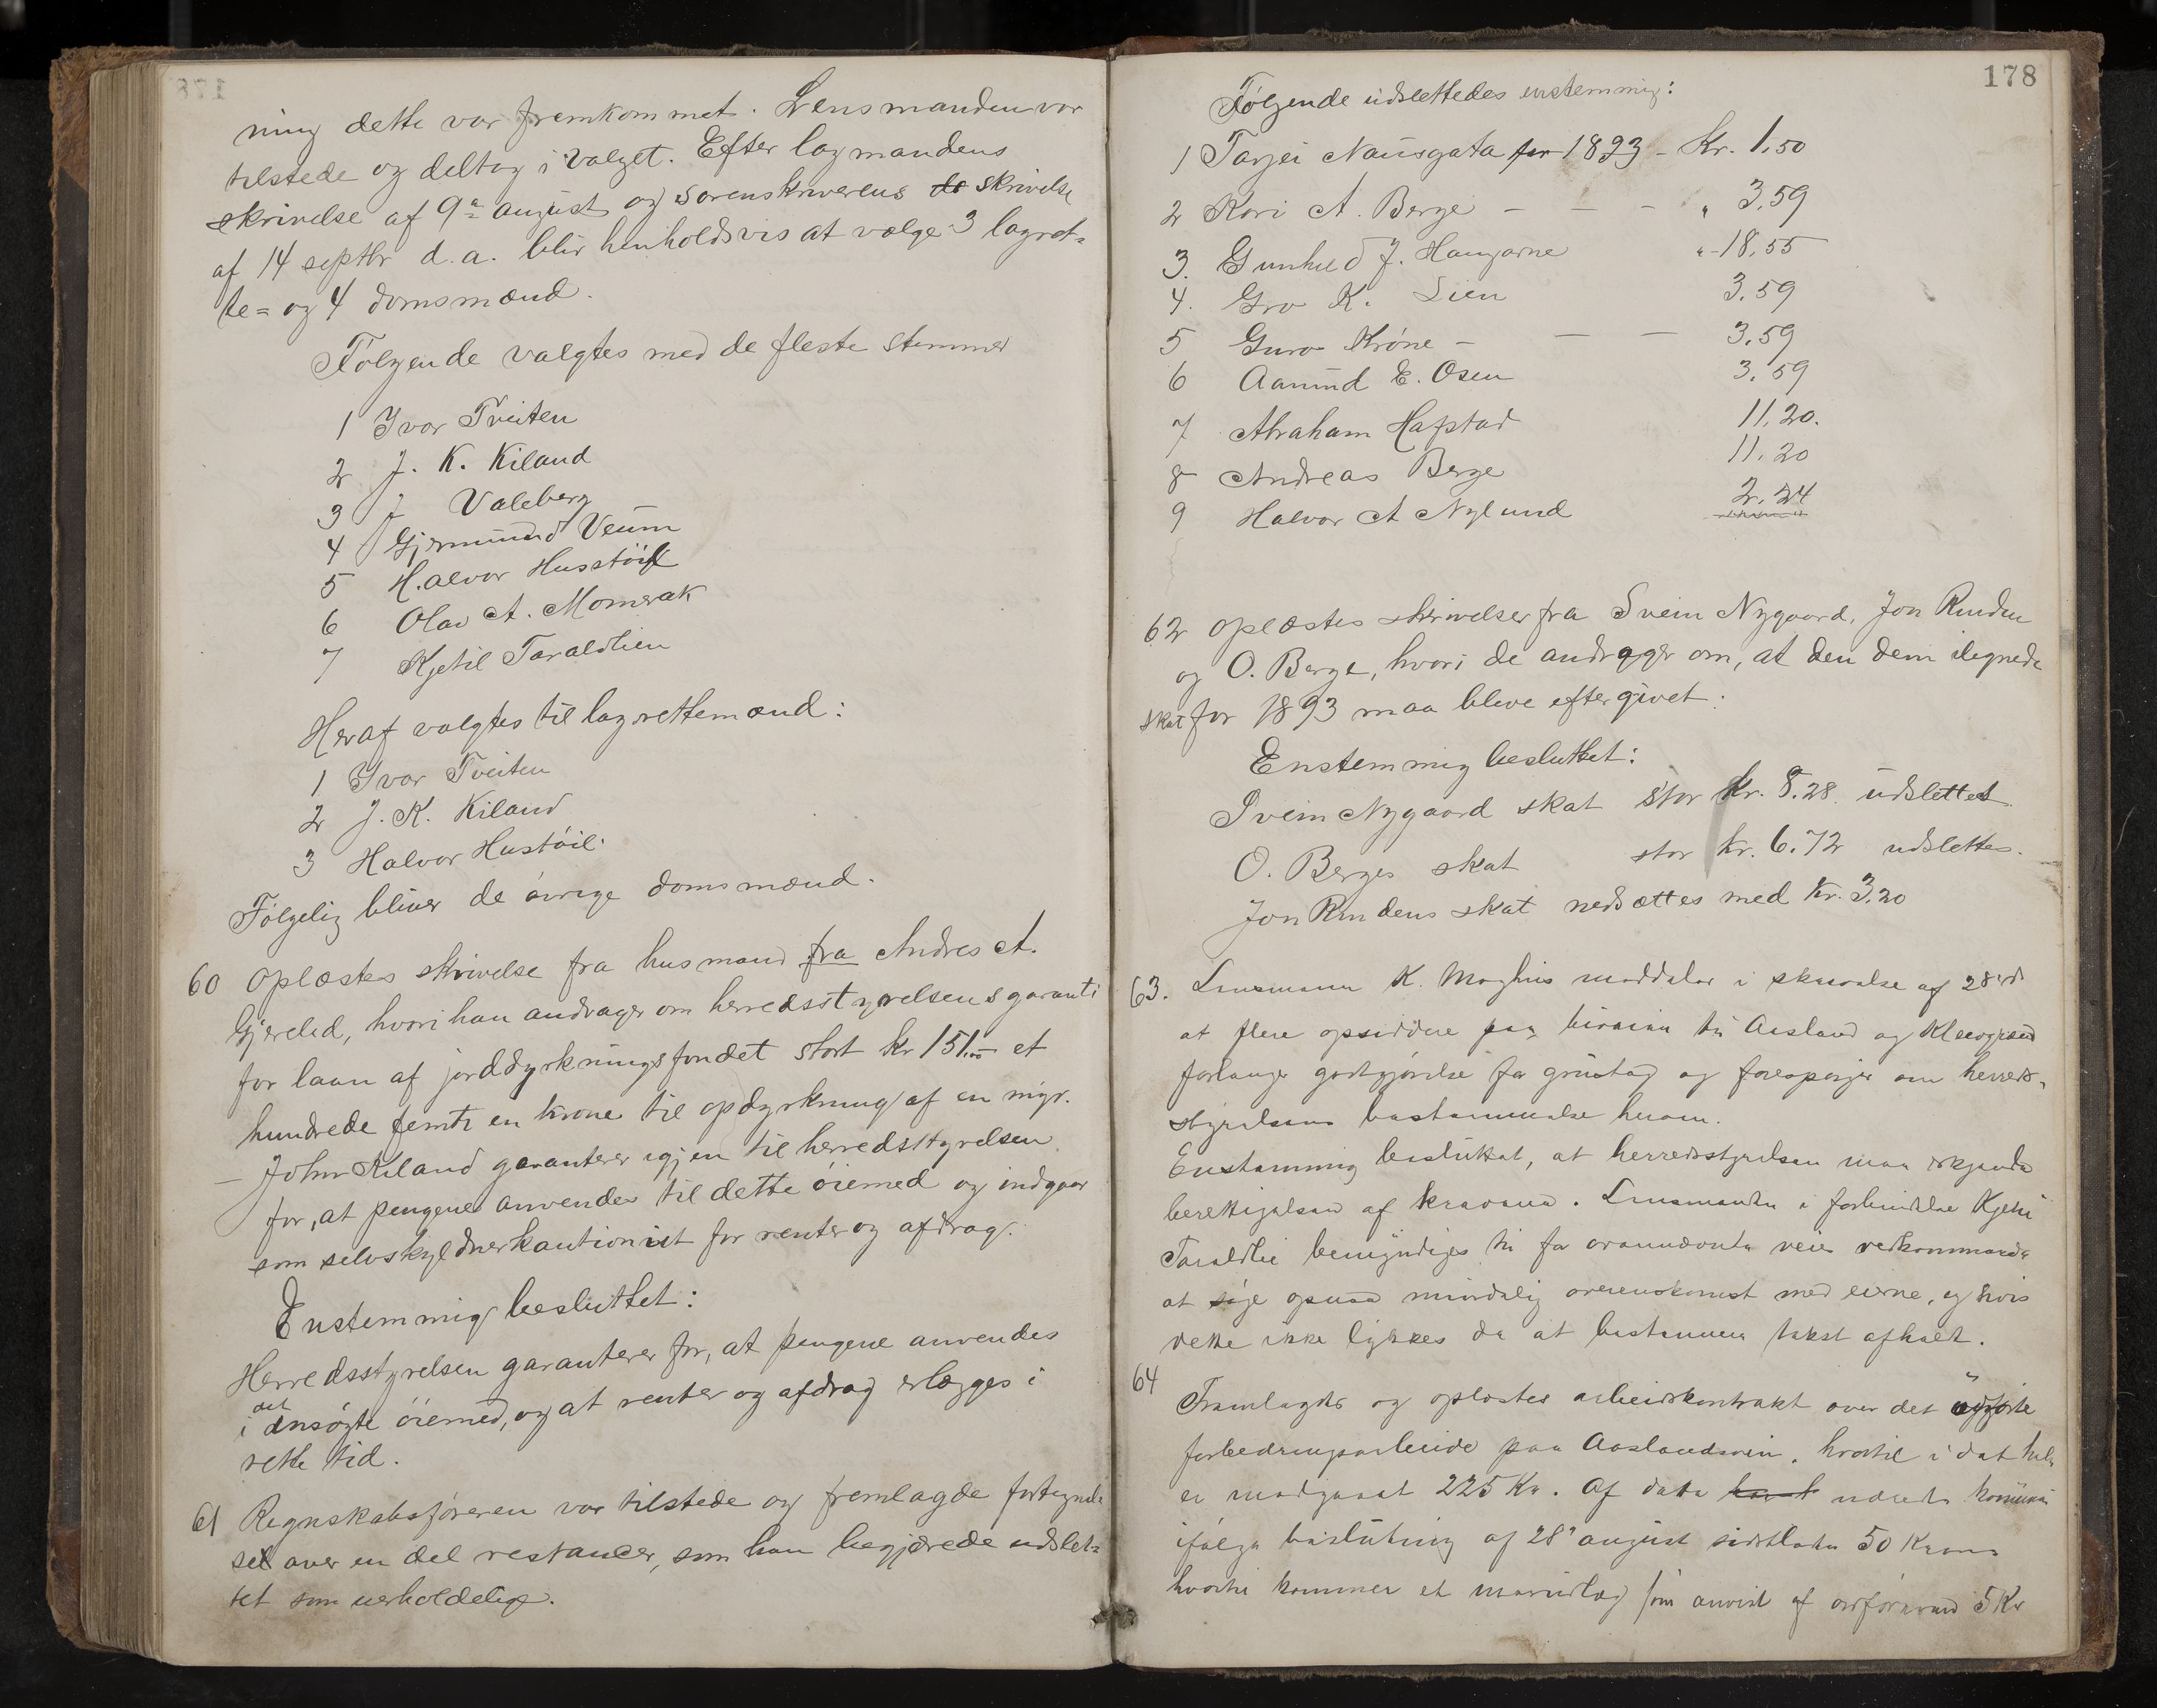 ning dette var fremkommet. Lensmanden var
tilstede og deltog i valget. Efter lagmandens
skrivelse af 9de august og sorenskriverens do skrivelse
af 14 septbr d.a. blir henholdsvis at vælge 3 lagret-
te= og 4 domsmænd.
Følgende valgtes med de fleste stemmer
1 Ivar Tveiten
2 J. K. Kiland
3 J Valeberg
4 Gjermund Veum
5 Halvor Husstøil
6 Olav A. Momrak
7 Kjetil Taraldlien
Heraf valgtes til lagrettemænd:
1 Ivar Tveiten
2 J. K. Kiland
3 Halvor Hustøil.
Følgelig bliver de øvrige domsmænd.
60 Oplæstes skrivelse fra husmand fra Andres A.
Gjerelid, hvori han andrager om herredsstyrelsens garanti
for laan af jorddyrkningsfondet stort kr 151.00 et
hundrede femti en krone til opdyrkning af en myr.
- John Kiland garanterer igjen til herredsstyrelsen
for, at pengene anvendes til dette øiemed og indgaar
som selvskyldnerkautionist for renter og afdrag.
Enstemmig besluttet:
Herredsstyrelsen garanterer for, at pengene anvendes
i det ansøgte øiemed, og at renter og afdrag erlægges i
rette tid.
61 Regnskabsføreren var tilstede og fremlagde fortegnel-
se over en del restancer, som han begjærede udslet-
tet som uerholdelige.
178
Følgende udslettedes enstemmig:
1 Tarjei Nausgata for 1893 - Kr. 1,50
2 Kari A. Berge - - - " 3,59
3. Gunhild J. Haugarne " - 18,55
4. Gro K. Lien 3,59
5 Guro Krone - - - 3,59
6 Aamund E. Osen 3,59
7 Abraham Hafstad 11,20.
8 Andreas Berge 11,20
9 Halvor A Nylund 2,24
62 Oplæstes skrivelser fra Svein Nygaard, Jon Rinden
og O. Berge, hvori de andrager om, at den dem ilegnede
skat for 1893 maa blive eftergivet:
Enstemmig besluttet:
Svein Nygaard skat stor kr. 8.28. udslettes.
O. Berges skat stor kr. 6.72 udslettes.
Jon Rindens skat nedsættes med kr. 3,20
63. Lensmann K. meddeler i skrivelse af 28de
at flere opsiddere paa til Aasland og
forlanger godtgjørelse for grustag og forespørger om herreds-
styrelsens bestemmelse herom.
Enstemmig besluttet, at herredsstyrelsen maa erkjende
berettigelsen af kravene. Lensmanden i forbindelse Kjetil
Taraldlie bemyndiges til for ovennævnte veies vedkommende
at søge opnaa mindelig overenskomst med eierne, og hvis
dette ikke lykkes da at bestemme takst afholt.
64
Fremlagdes og oplæstes arbeidskontrakt over det udførte
forbedringsarbeide paa Aaslandsvein, hvortil i det hele
er medgaaet 225 Kr. Af dette udreder kommunen
ifølge beslutning af 28' august sidstleden 50 Kroner
hvortil kommer et som anvist af ordføreren 5 Kr